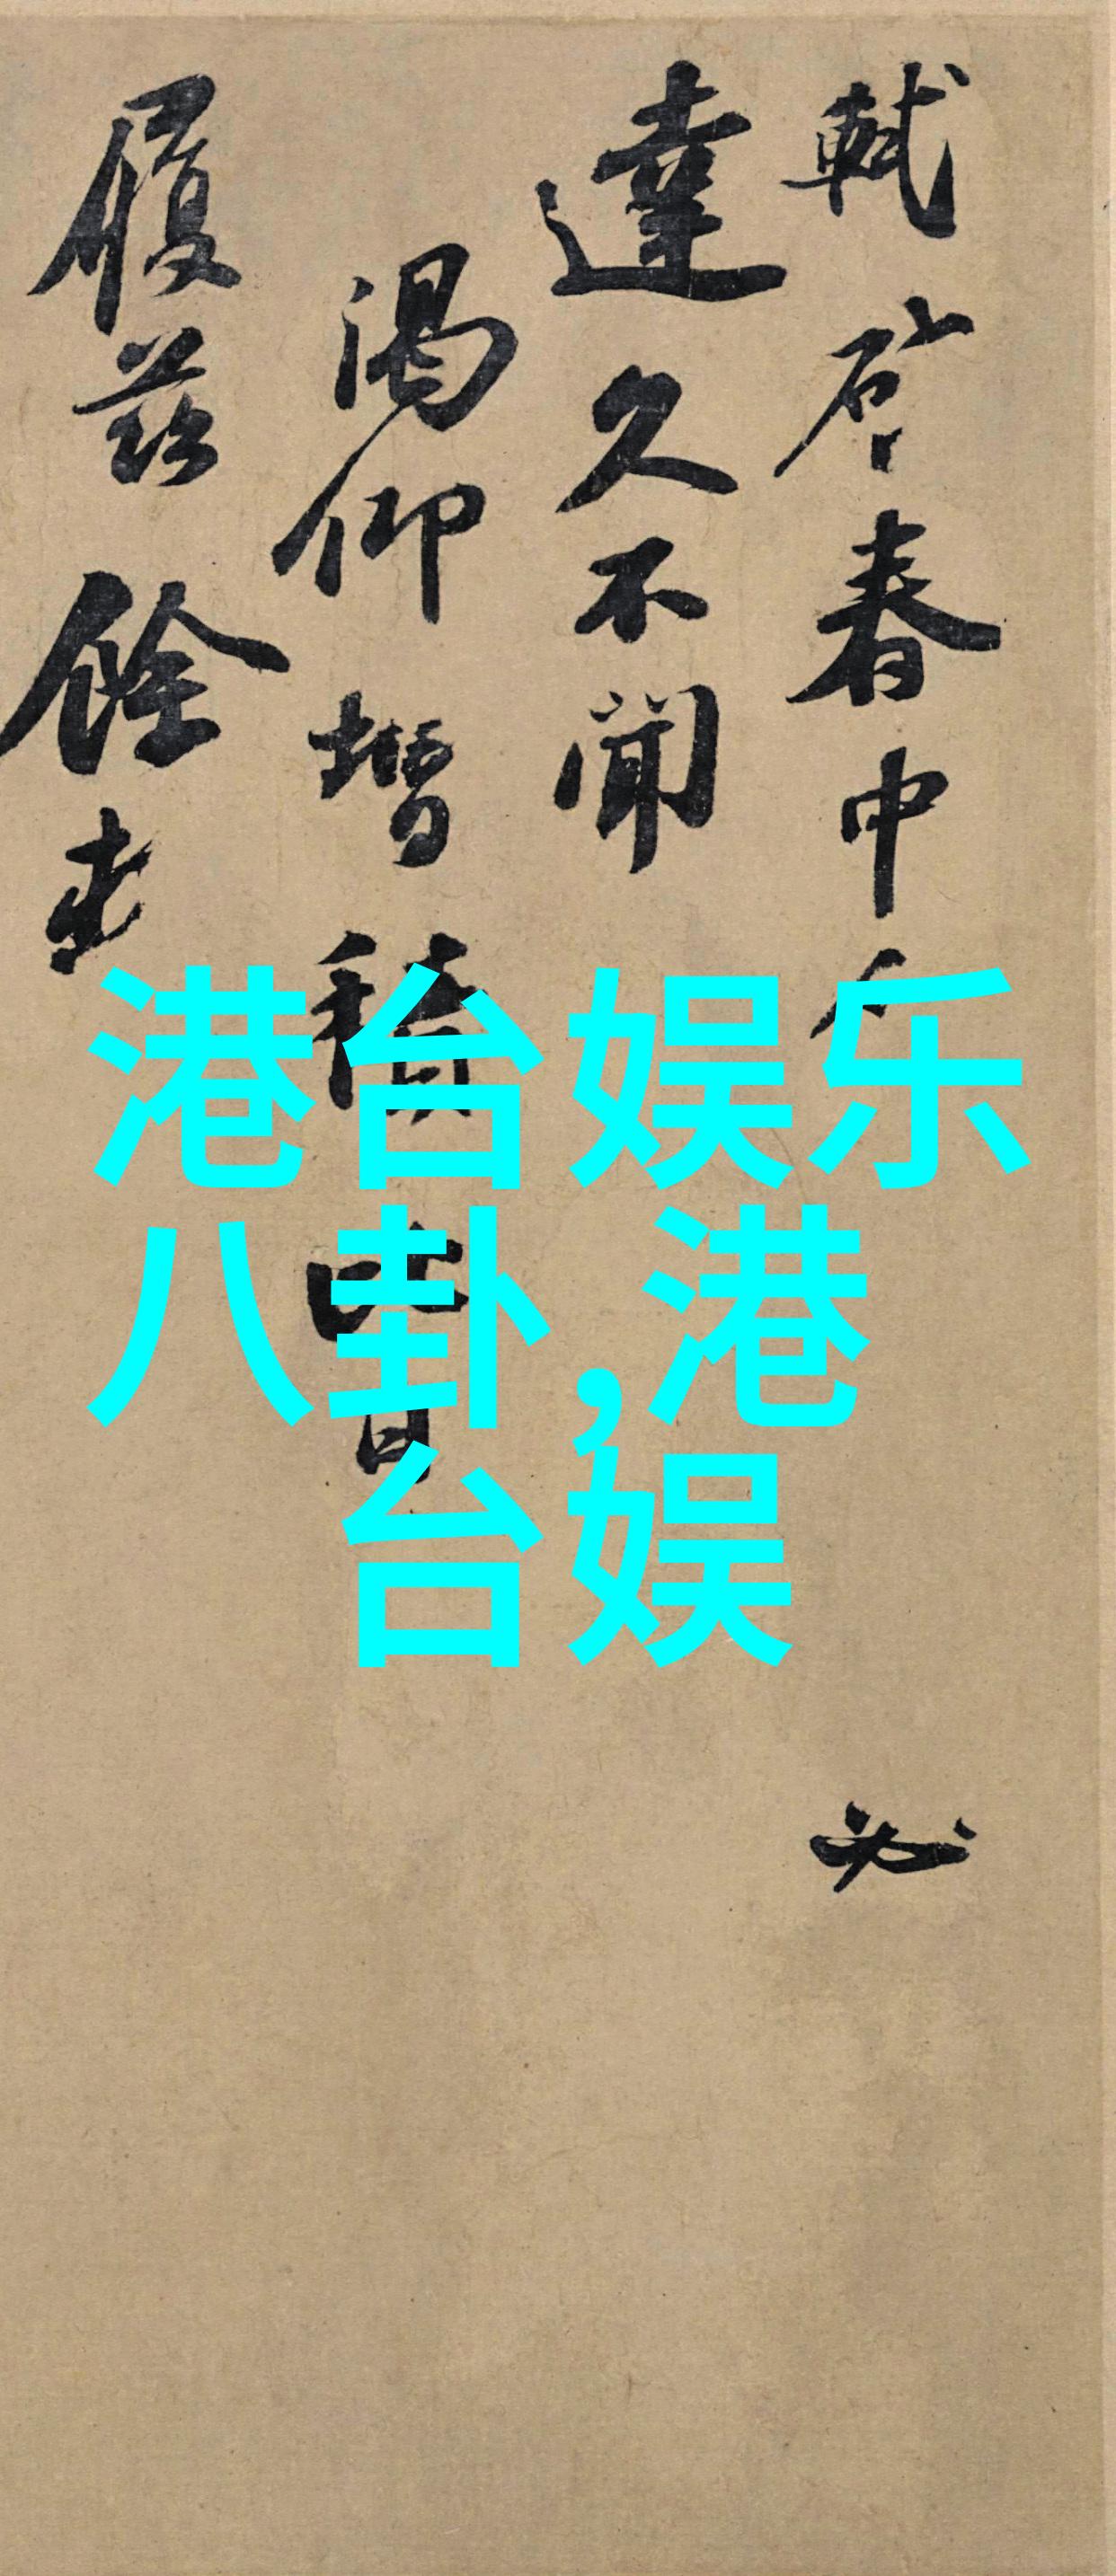 軾啓春中
達久不聞
渴仰增積比日
履茲餘
港台娱乐
八卦,港
台娱